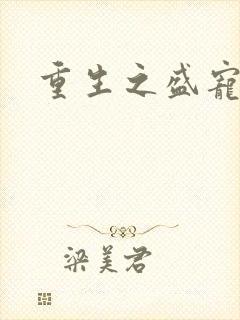 重生之盛寵
梁美君